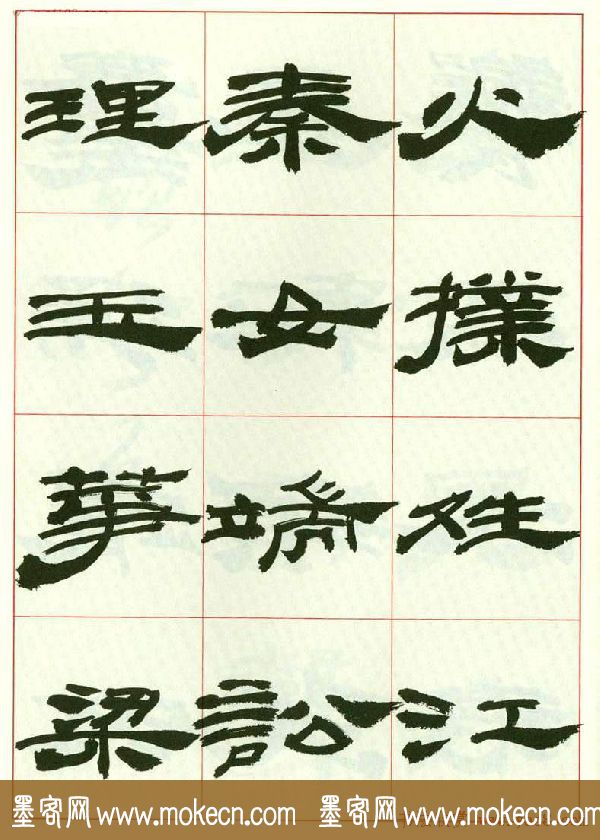 火撲姓江
秦女端訟
理五華梁
墨客网 www.mokecn.com 墨客网 www.mokecn.com